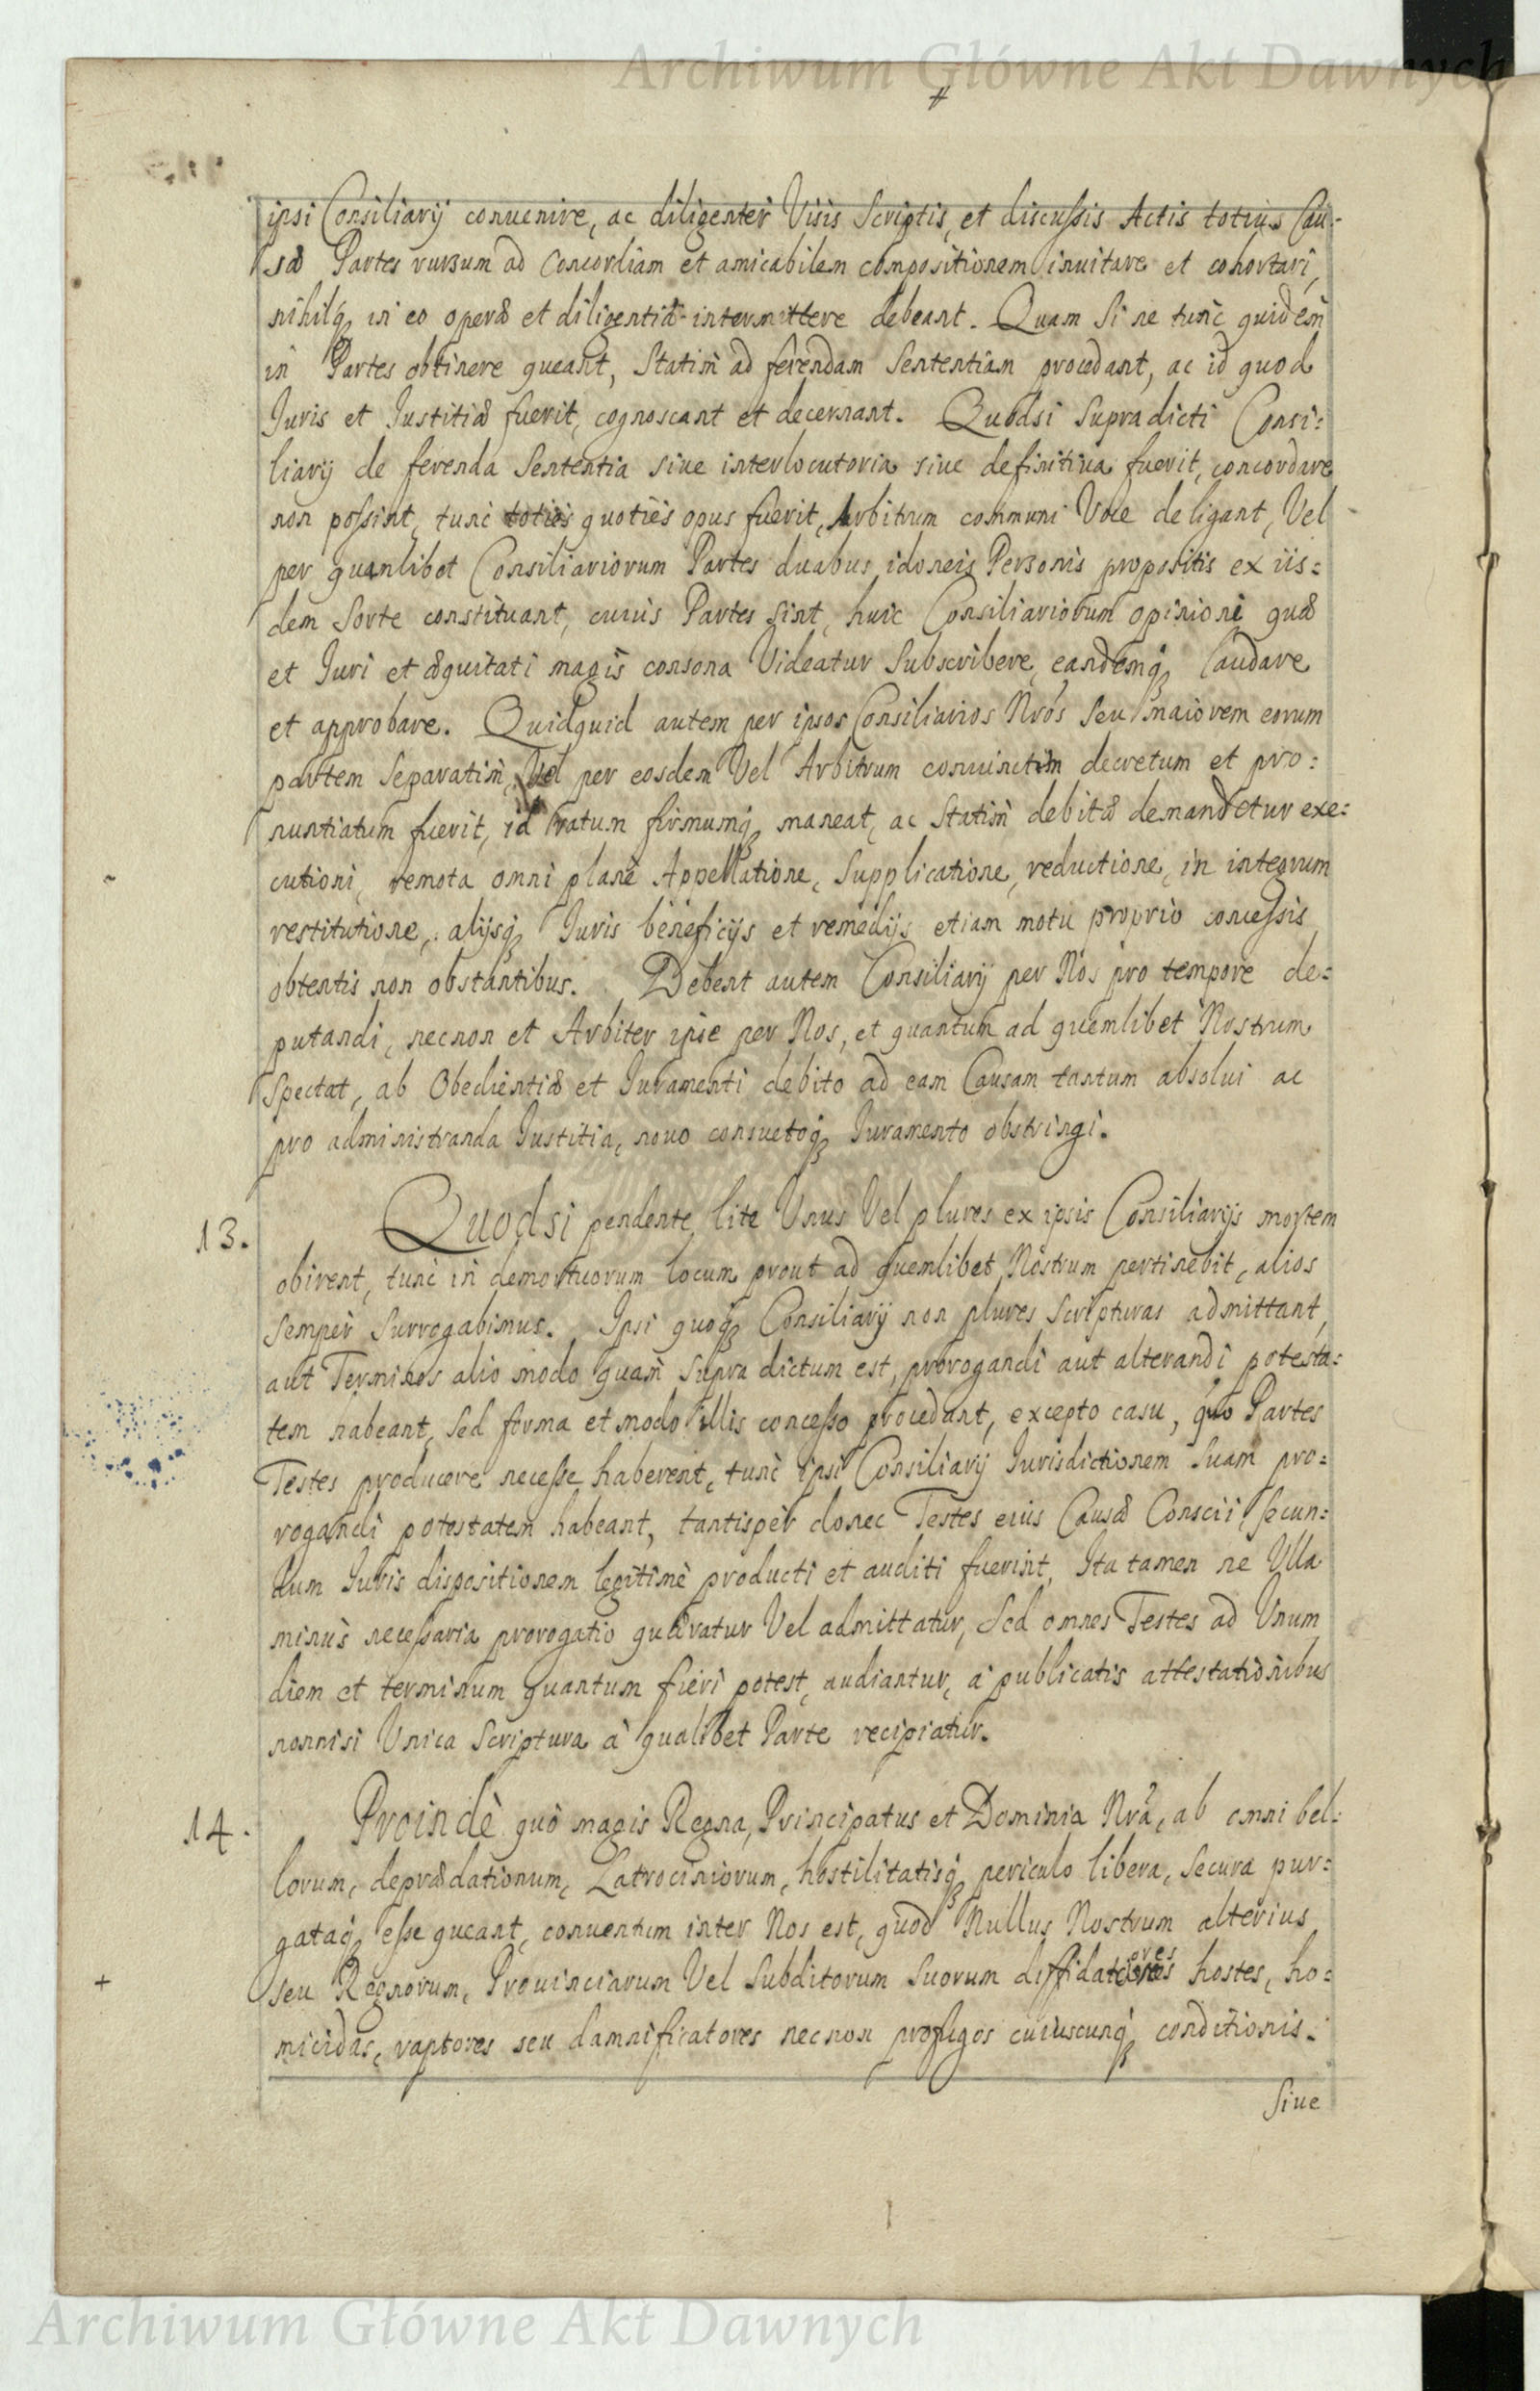 Archiwum Główne Akt Dawnych
#
ipsi Consiliarij conuenire, ac diligenter Visis Scriptis, et discussis Actis totius Cau:
sæ Partes rursum ad Concordiam et amicabilem compositionem inuitare et cohortari,
nihilq; in eo operæ et diligentiæ intermittere debeant. Quam Si ne tunc quidem
in Partes obtinere queant, Statim ad ferendam Sententiam procedant, ac id quod
Juris et Justitiæ fuerit, cognoscant et decernant. Quodsi Supradicti Consi:
liarij de ferenda Sententia siue interlocutoria siue definitiua fuerit, concordare
non possint, tunc toties quoties opus fuerit, Arbitrum communi Voce deligant, Vel
per quamlibet Consiliariorum Partes duabus idoneis Personis propositis ex iis:
dem Sorte constituant, cuius Partes sint, huic Consiliariorum opinioni quæ
et Juri et æquitati magis consona Videatur Subscribere, eandemq; laudare
et approbare. Quidquid autem per ipsos Consiliarios Nros Seu maiorem eorum
partem Separatim, Vel per eosdem Vel Arbitrum coniunctim decretum et pro:
nuntiatum fuerit, id ratum firmumq; maneat, ac Statim debitæ demandetur exe:
cutioni, remota omni planè Appellatione, Supplicatione, reductione, in integrum
restitutione, alijsq; Juris beneficijs et remedijs etiam motu proprio concessis
obtentis non obstantibus. Debent autem Consiliarij per Nos pro tempore de:
putandi, necnon et Arbiter ipse per Nos, et quantum ad quemlibet Nostrum
Spectat, ab Obedientiæ et Juramenti debito ad eam Causam tantum absolui ac
pro administranda Justitia, nouo consuetoq; Juramento obstringi.
13. Quodsi pendente lite Vnus Vel plures ex ipsis Consiliarijs mortem
obirent, tunc in demortuorum locum prout ad quemlibet Nostrum pertinebit, alios
Semper Surrogabimus. Ipsi quoq; Consiliarij non plures Scripturas admittant,
aut Terminos alio modo quam Supra dictum est, prorogandi aut alterandi potesta:
tem habeant, Sed forma et modo illis concesso procedant, excepto casu, quo Partes
Testes producere necesse haberent, tunc ipsi Consiliarij Jurisdictionem Suam pro:
rogandi potestatem habeant, tantispèr donec Testes eius Causæ Conscii, Secun:
dum Juris dispositionem legitimè producti et auditi fuerint, Ita tamen ne Vlla
minùs necessaria prorogatio quæratur Vel admittatur, Sed omnes Testes ad Vnum
diem et terminum quantum fieri potest, audiantur, à publicatis attestationibus
nonnisi Vnica Scriptura à qualibet Parte recipiatur.
14. Proindè quò magis Regna, Principatus et Dominia Nra, ab omni bel:
lorum, deprædationum, Latrociniorum, hostilitatisq; periculo libera, Secura pur:
gataq; esse queant, conuentum inter Nos est, quod Nullus Nostrum alterius
+ seu Regnorum, Prouinciarum Vel Subditorum Suorum diffidatores hostes, ho:
micidas, raptores seu damnificatores necnon profugos cuiuscunq; conditionis.
Siue
Archiwum Główne Akt Dawnych